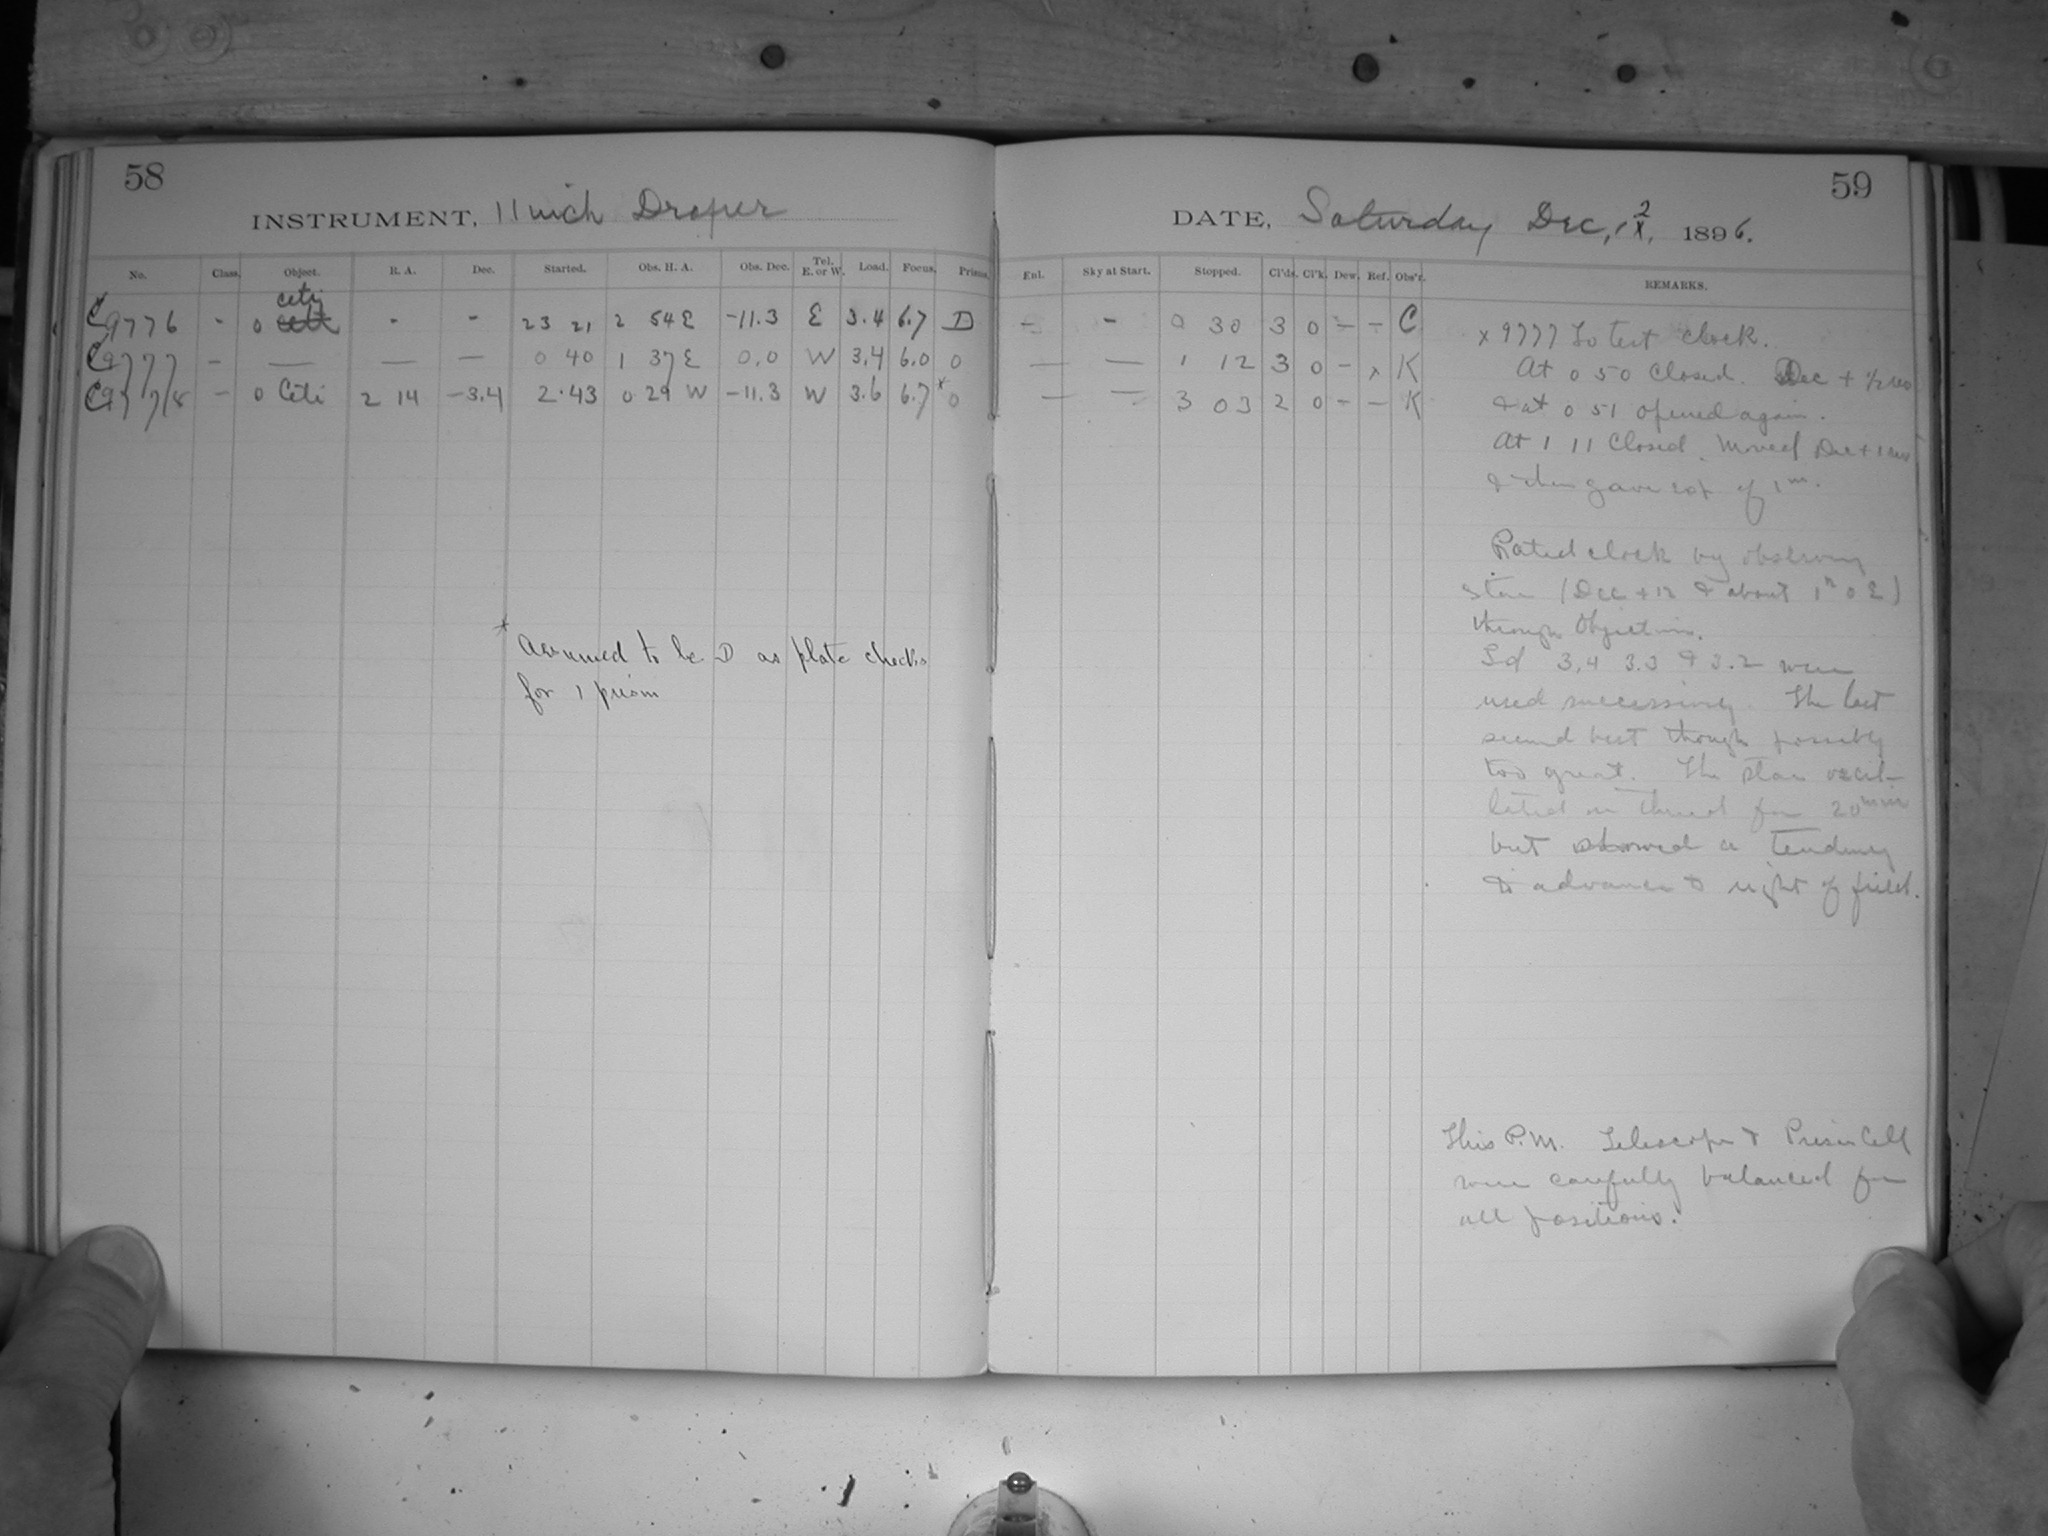 58
INSTRUMENT, 11 inch Draper
No. Class. Object. R. A. Dec. Started. Obs. H. A. Obs. Dec. Tel. E. or W. Load. Focus. Prisms.
Ceti
C9776 - o Ceti - - 23 21 2 54 E -11.3 E 3.4 6.7 D
C9777 - — — — 0 40 1 37 E 0.0 W 3.4 6.0 0
C9778 - o Ceti 2 14 -3.4 2.43 0 29 W -11.3 W 3.6 6.7 * 0
* Assumed to be D as plate checks
for 1 prism
59
DATE, Saturday Dec, 12, 1896.
Enl. Sky at Start. Stopped. Cl'ds. Cl'k. Dew. Ref. Obs'r. REMARKS.
- - 0 30 3 0 - - C
— — 1 12 3 0 - x K
— — 3 03 2 0 - - K
x 9777 To test clock.
At 0 50 Closed. Dec + 1/2
& at 0 51 opened again.
At 1 11 Closed. Moved Dec + 1
& then gave exp of 1m.
Rated clock by observing
star (Dec + 12 & about 1h 0 E)
through Objective.
Ld 3.4 3.3 & 3.2 were
used successively. The last
seemed best though possibly
too great. The star oscil-
lated on thread for 20 min
but showed a tendency
to advance to right of field.
This P.M. Telescope & Prism Cell
were carefully balanced for
all positions.